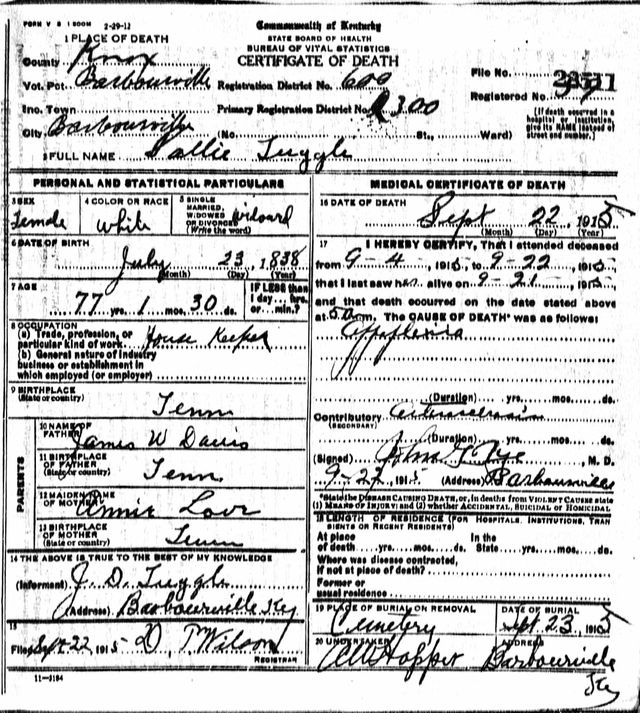 FORM V S 1 500M 2-29-12
Commonwealth of Kentucky
STATE BOARD OF HEALTH
BUREAU OF VITAL STATISTICS
CERTIFICATE OF DEATH
1 PLACE OF DEATH
County Knox
Vot. Pct. Barbourville Registration District No. 600
File No.
Registered No.
Inc. Town Primary Registration District No. 2300
City Barbourville (No. St., Ward)
(If death occurred in a hospital or institution, give its NAME instead of street and number.)
2 FULL NAME Sallie Tuggle
PERSONAL AND STATISTICAL PARTICULARS
3 SEX Female
4 COLOR OR RACE White
5 SINGLE MARRIED, WIDOWED OR DIVORCED (Write the word)
6 DATE OF BIRTH July 23, 1838
(Month) (Day) (Year)
7 AGE 77 yrs. 1 mos. 30 ds.
IF LESS than 1 day.... hrs. or min.?
8 OCCUPATION
(a) Trade, profession, or particular kind of work House Keeper
(b) General nature of industry business or establishment in which employed (or employer)
9 BIRTHPLACE (State or country) Tenn
PARENTS
10 NAME OF FATHER James W Davis
11 BIRTHPLACE OF FATHER (State or country) Tenn
12 MAIDEN NAME OF MOTHER Annie
13 BIRTHPLACE OF MOTHER (State or country) Tenn
14 THE ABOVE IS TRUE TO THE BEST OF MY KNOWLEDGE
(Informant) J. D. Tuggle
(Address) Barbourville Ky
15
Filed Sept 22, 1915 Wilson
REGISTRAR
11-3184
MEDICAL CERTIFICATE OF DEATH
16 DATE OF DEATH Sept 22, 1915
(Month) (Day) (Year)
17 I HEREBY CERTIFY, That I attended deceased
from 9-4, 1915 to 9-22, 1915
that I last saw her alive on 9-21, 1915
and that death occurred on the date stated above
at m. The CAUSE OF DEATH* was as follows:
(Duration) yrs. mos. ds.
Contributory (SECONDARY)
(Duration) yrs. mos. ds.
(Signed) John M. D.
9-22, 1915 (Address) Barbourville
*State the DISEASE CAUSING DEATH, or, in deaths from VIOLENT CAUSES state
(1) MEANS OF INJURY; and (2) whether ACCIDENTAL, SUICIDAL or HOMICIDAL
18 LENGTH OF RESIDENCE (FOR HOSPITALS, INSTITUTIONS, TRANSIENTS OR RECENT RESIDENTS)
At place of death yrs. mos. ds. In the State yrs. mos. ds.
Where was disease contracted, if not at place of death?
Former or usual residence
19 PLACE OF BURIAL OR REMOVAL Cemetery
DATE OF BURIAL Sept. 23, 1915
20 UNDERTAKER Hopper
ADDRESS Barbourville Ky